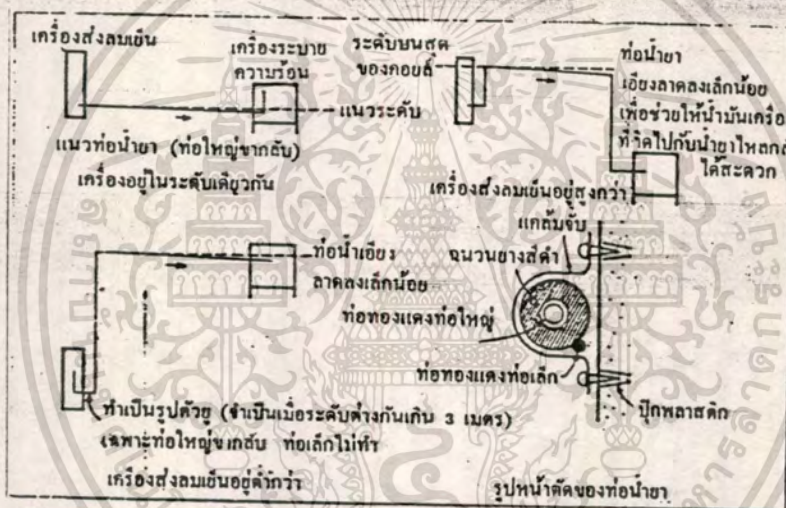 เครื่องส่งลมเย็น
เครื่องระบาย
ความร้อน
แนวระดับ
แนวท่อน้ำยา (ท่อใหญ่ขากลับ)
เครื่องอยู่ในระดับเดียวกัน
ระดับบนสุด
ของคอยล์
ท่อน้ำยา
เอียงลาดลงเล็กน้อย
เพื่อช่วยให้น้ำมันเครื่อง
ที่ติดไปกับน้ำยาไหลกลับ
ได้สะดวก
เครื่องส่งลมเย็นอยู่สูงกว่า
ท่อน้ำเอียง
ลาดลงเล็กน้อย
ทำเป็นรูปตัวยู (จำเป็นเมื่อระดับต่างกันเกิน 3 เมตร)
เฉพาะท่อใหญ่ขากลับ ท่อเล็กไม่ทำ
เครื่องส่งลมเย็นอยู่ต่ำกว่า
แคล้มจับ
ฉนวนยางสีดำ
ท่อทองแดงท่อใหญ่
ท่อทองแดงท่อเล็ก
ปุ๊กพลาสติก
รูปหน้าตัดของท่อน้ำยา